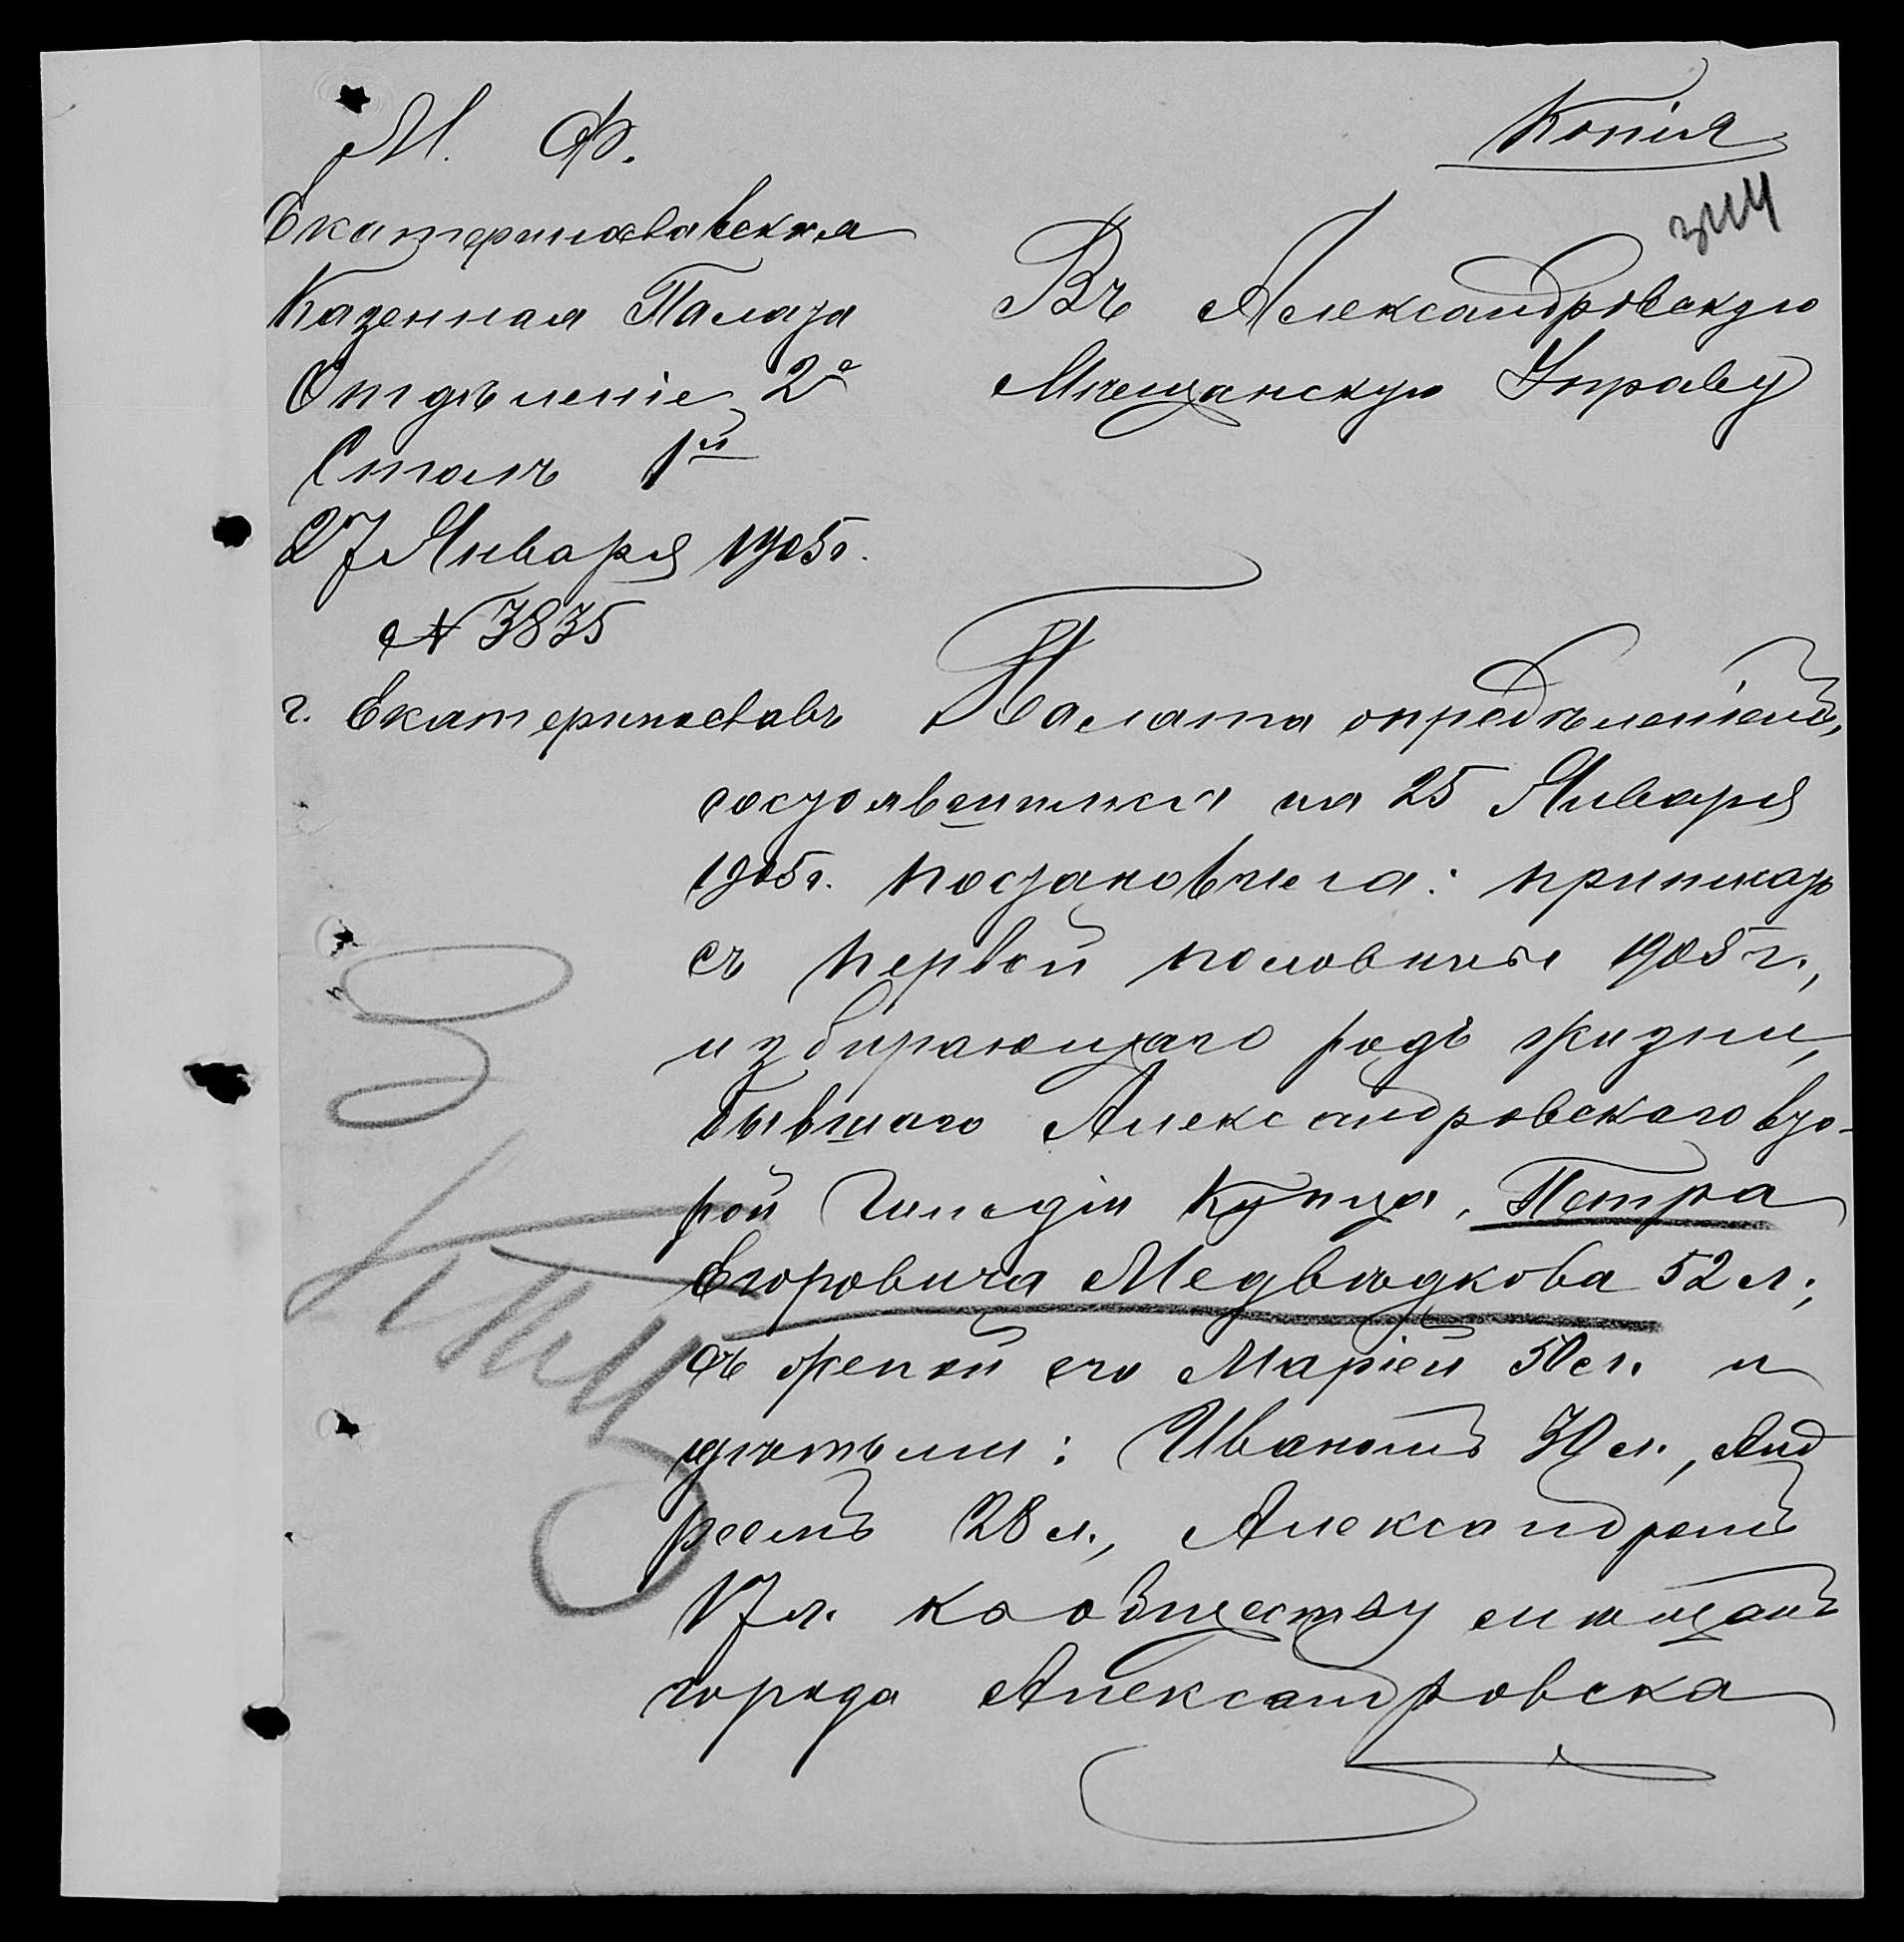 Копія
М. Ф.
Екатеринославская
Казенная Палата
Отдѣленіе 2е
Столъ 1й
27 Января 1905г.
№ 3835
г. Екатеринославъ
Въ Александровскую
Мѣщанскую Управу
Палата опредѣленіемъ,
состоявшимся на 25 Января
1905г. постановила: причислить
съ первой половины 1905 г.,
избирающаго родъ жизни,
бывшаго Александровскаго вто-
рой гильдіи купца, Петра
Егоровича Медвѣдкова 52 л;
съ женой его Маріей 50 л. и
дѣтьми: Иваномъ 30 л., Анд
реемъ 28 л., Александромъ
17 л. къ обществу мѣщанъ
города Александровска